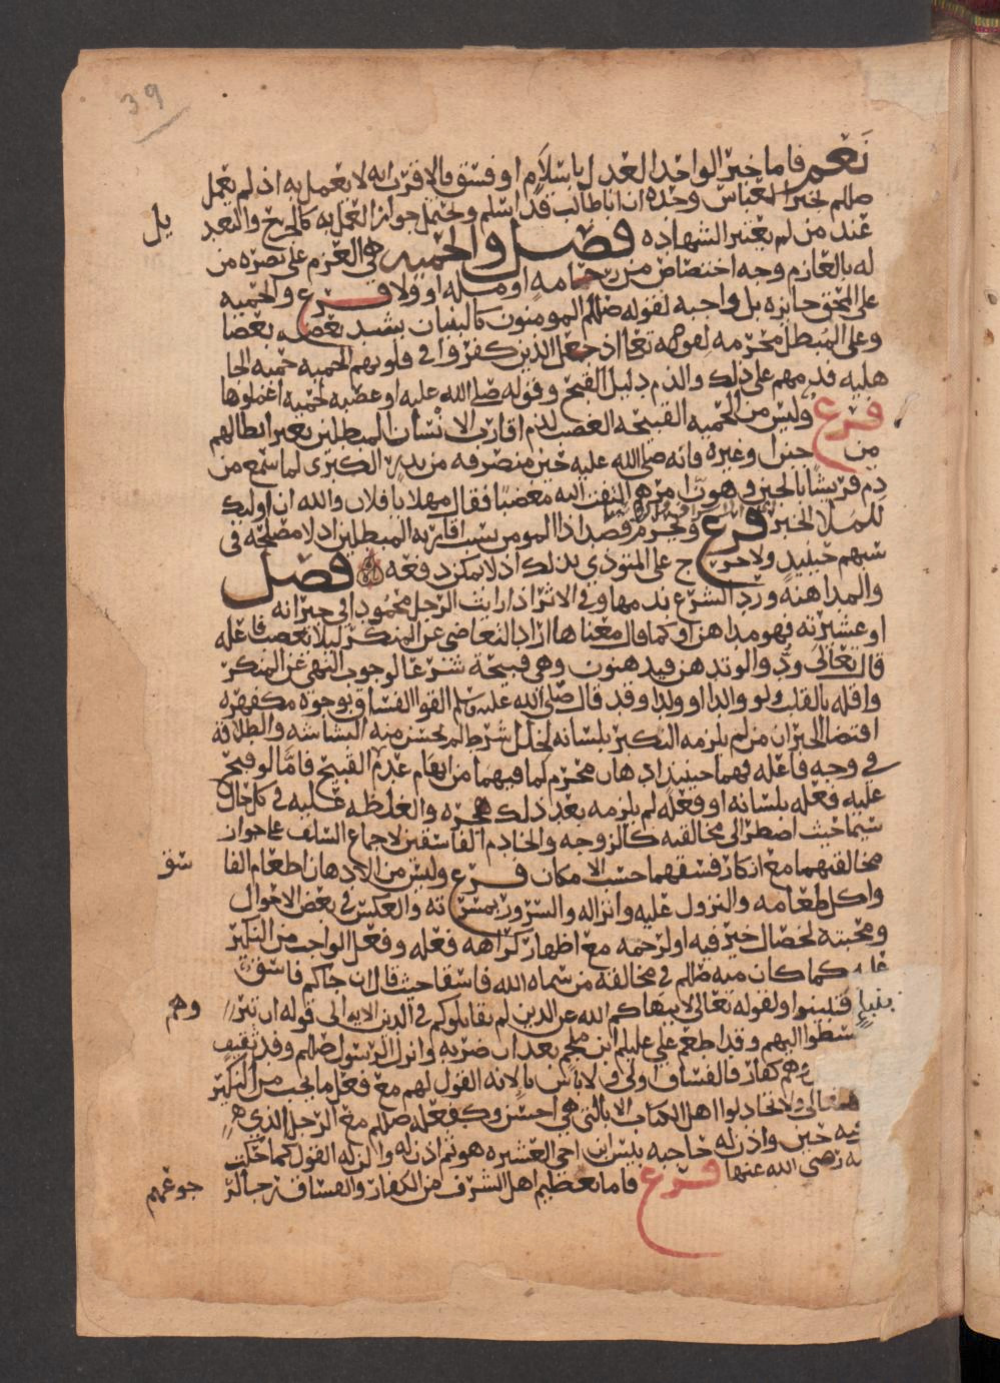 39
نعم فاما خبر الواحد العدل باسلام او فسق فالاقرب انه لا يعمل به اذ لم يعمل
صللم لخبر العباس وحده ان اباطالب قد اسلم ويحتمل جواز العمل به كالجرح والتعديل
عند من لم يعتبر الشهاده فصل والحميه هي العزم على نصره من
له بالعازم وجه اختصاص من رحامه او مله او ولا فرع والحميه
على المحق جايزه بل واجبه لقوله صللم المومنون كالبنيان يشد بعضه بعضا
وعلى المبطل محرمه لقوله تعالى اذ جعل الذين كفروا في قلوبهم الحميه حميه الجا
هليه فذمهم على ذلك والذم دليل القبح وقوله صلى الله عليه او عصبه لحميه
فرع وليس من الحميه القبيحه الغضب لذم اقارب الانسان المبطلين بغير ابطالهم
من وغيره فانه صلى الله عليه حين منصرفه من بدر الكبرى لما سمع من
ذم قريشا بالجبن التفت اليه مغضبا فقال مهلا يا فلان والله ان اوليك
للملا فرع ويحرم قصد اذا المومن بسب اقاربه المبطلين اذ لا مصلحه في
سبهم حينيذ ولا حرج على المتوذي بذلك اذ لا يمكنه دفعه فصل
والمداهنه ورد الشرع بذمها وفي الاثر اذا رايت الرجل محمودا في جيرانه
او عشيرته فهو مداهن او كما قال معناها اراد التغاضي عن المنكر ليلا تغضب فاعله
قال تعالى ودوا لو تدهن فيدهنون وهي قبيحة شرعا لوجوب النهي عن المنكر
واقله بالقلب ولو والدا او ولدا وقد قال صلى الله عليه وسلم القوا الفساق بوجوه مكفهره
اقتضا الخبر ان من لم يلزمه النكير بلسانه لخلل شرط لم يحسن منه البشاشه والطلاقة
في وجه فاعله فهما حينيذ ادهان محرم لما فيهما من ايهام عدم القبيح فاما لو قبح
عليه فعله بلسانه او فعله لم يلزمه بعد ذلك هجره والغلظه عليه في كل حال
سيما حيث اضطر الى مخالقته كالزوجه والخادم الفاسقين لاجماع السلف على جواز
مخالقتهما مع انكار فسقهما حسب الامكان فرع وليس من الادهان اطعام الفاسق
واكل طعامه والنزول عليه وانزاله والسرور بمسرته والعكس في بعض الاحوال
ومحبته لخصال خير فيه او لرحمه مع اظهار كراهه فعله وفعل الواجب من النكير
عليه كما كان منه صللم في مخالقه من سماه الله فاسقا حيث قال ان جاكم فاسق
بنبا فتبينوا ولقوله تعالى لا ينهاكم الله عن الذين لم يقاتلوكم في الدين الايه الى قوله ان تبروهم
وتقسطوا اليهم وقد اطعم علي عليلم ابن ملجم بعد ان ضربه وانزل الرسول صللم وفد ثقيف
وهم كفار فالفساق اولى ولا باس بالانه القول لهم مع فعل ما يجب من النكير
ولا تجادلوا اهل الكتاب الا بالتي هي احسن وكفعله صللم مع الرجل الذي
فيه حين واذن له صاحبه بيس ابن اخي العشيره هو ثم اذن له والان له القول كما حكت
رضي الله عنها فرع فاما تعظيم اهل الشرف من الكفار والفساق فجايز
جوعهم